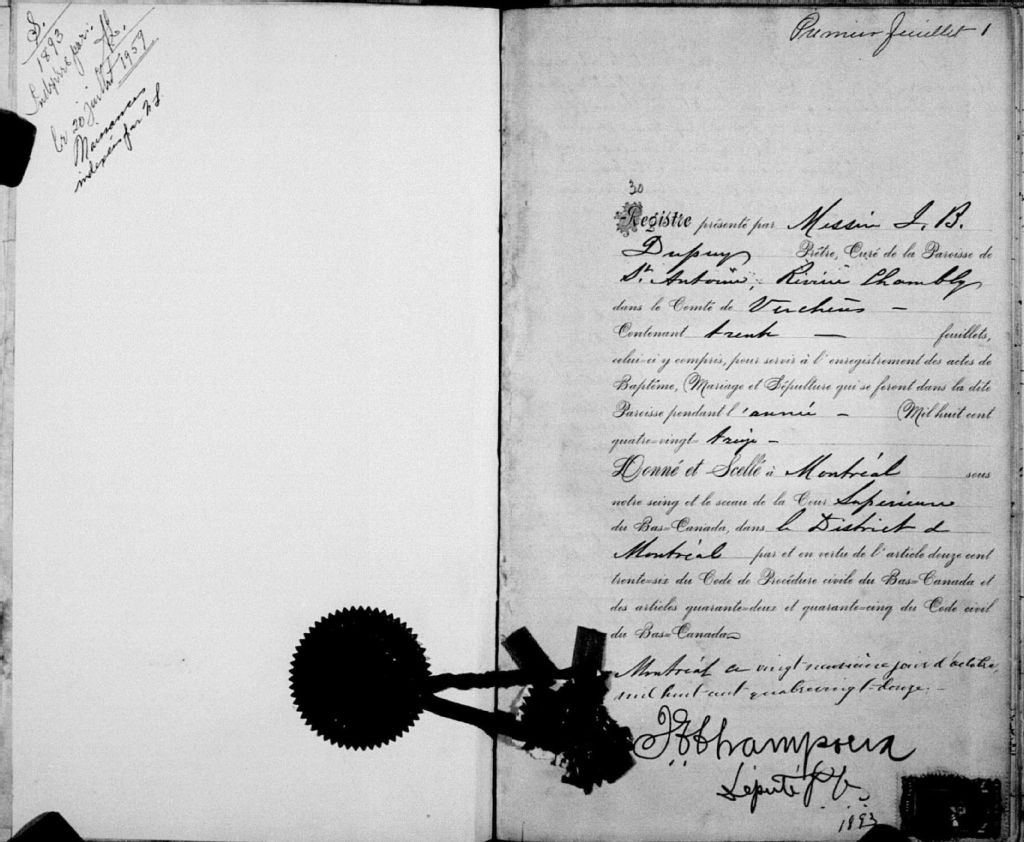 S.
1893
Indexé par: H.L.
le 20 juillet 1959
Naissances
indexées par H.L.
Premier feuillet 1
30
Registre présenté par Messire J. B.
Dupuy Prêtre, Curé de la Paroisse de
St. Antoine, Rivière Chambly
dans le Comté de Verchères –
Contenant trente – feuillets,
celui-ci y compris, pour servir à l'enregistrement des actes de
Baptême, Mariage et Sépulture qui se feront dans la dite
Paroisse pendant l'année – Mil huit cent
quatre-vingt treize –
Donné et Scellé à Montréal sous
notre seing et le sceau de la Cour Supérieure
du Bas-Canada, dans le District de
Montréal par et en vertu de l'article douze cent
trente-six du Code de Procédure civile du Bas-Canada et
des articles quarante-deux et quarante-cinq du Code civil
du Bas-Canada
Montréal ce vingt-neuvième jour d'octobre,
mil huit cent quatrevingt-douze. –
Champoux
Député
1893